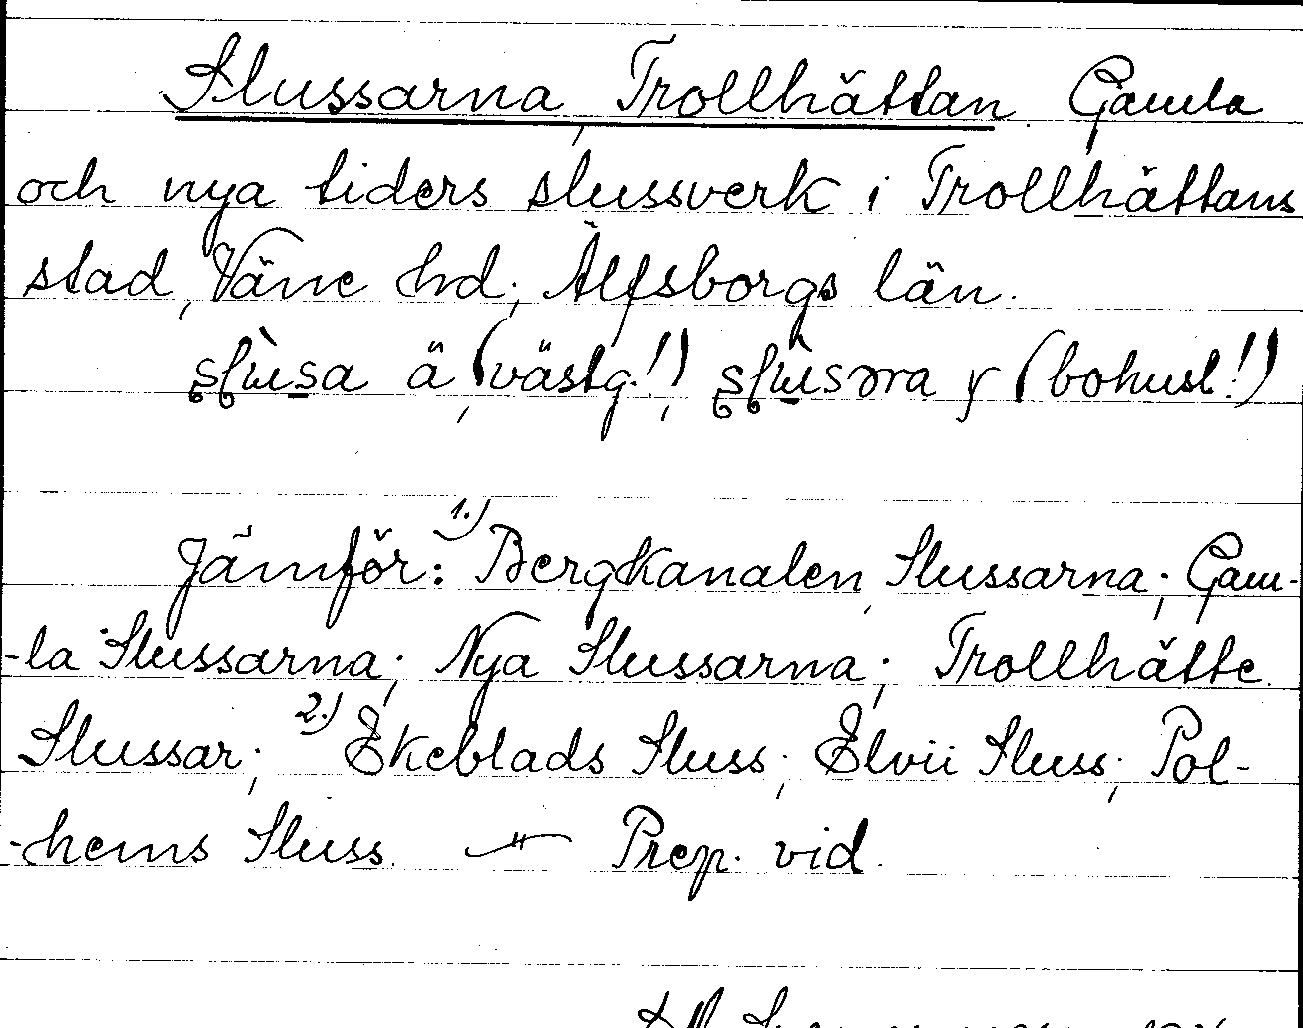 Slussarna, Trollhättan. Gamla
och nya tiders slussverk i Trollhättans
stad, Väne hd, Älfsborgs län.
ä, (västg.!), (bohusl.!)
Jämför: 1.) Bergkanalen, Slussarna; Gam-
-la Slussarna; Nya Slussarna; Trollhätte
Slussar; 2.) Ekeblads Sluss; Elvii Sluss; Pol-
-hems Sluss. Prep. vid.